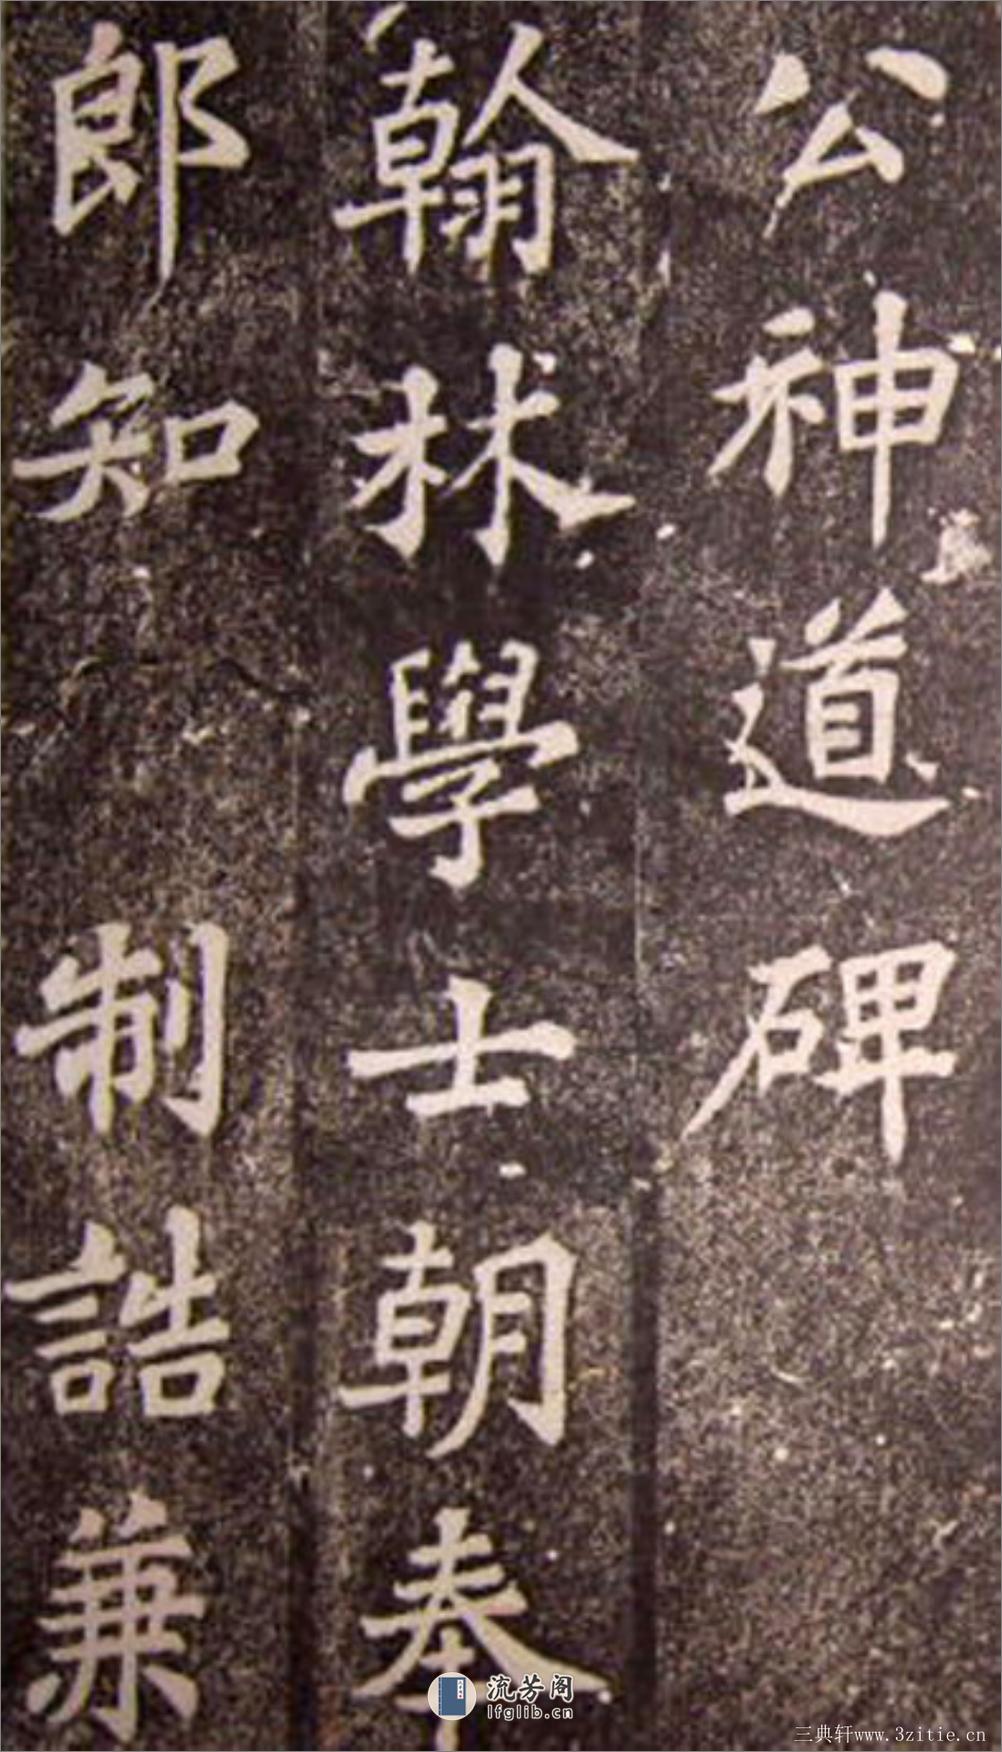 公神道碑
翰林學士朝奉
郎知制誥兼
流芳阁
lfglib.cn
三典轩www.3zitie.cn